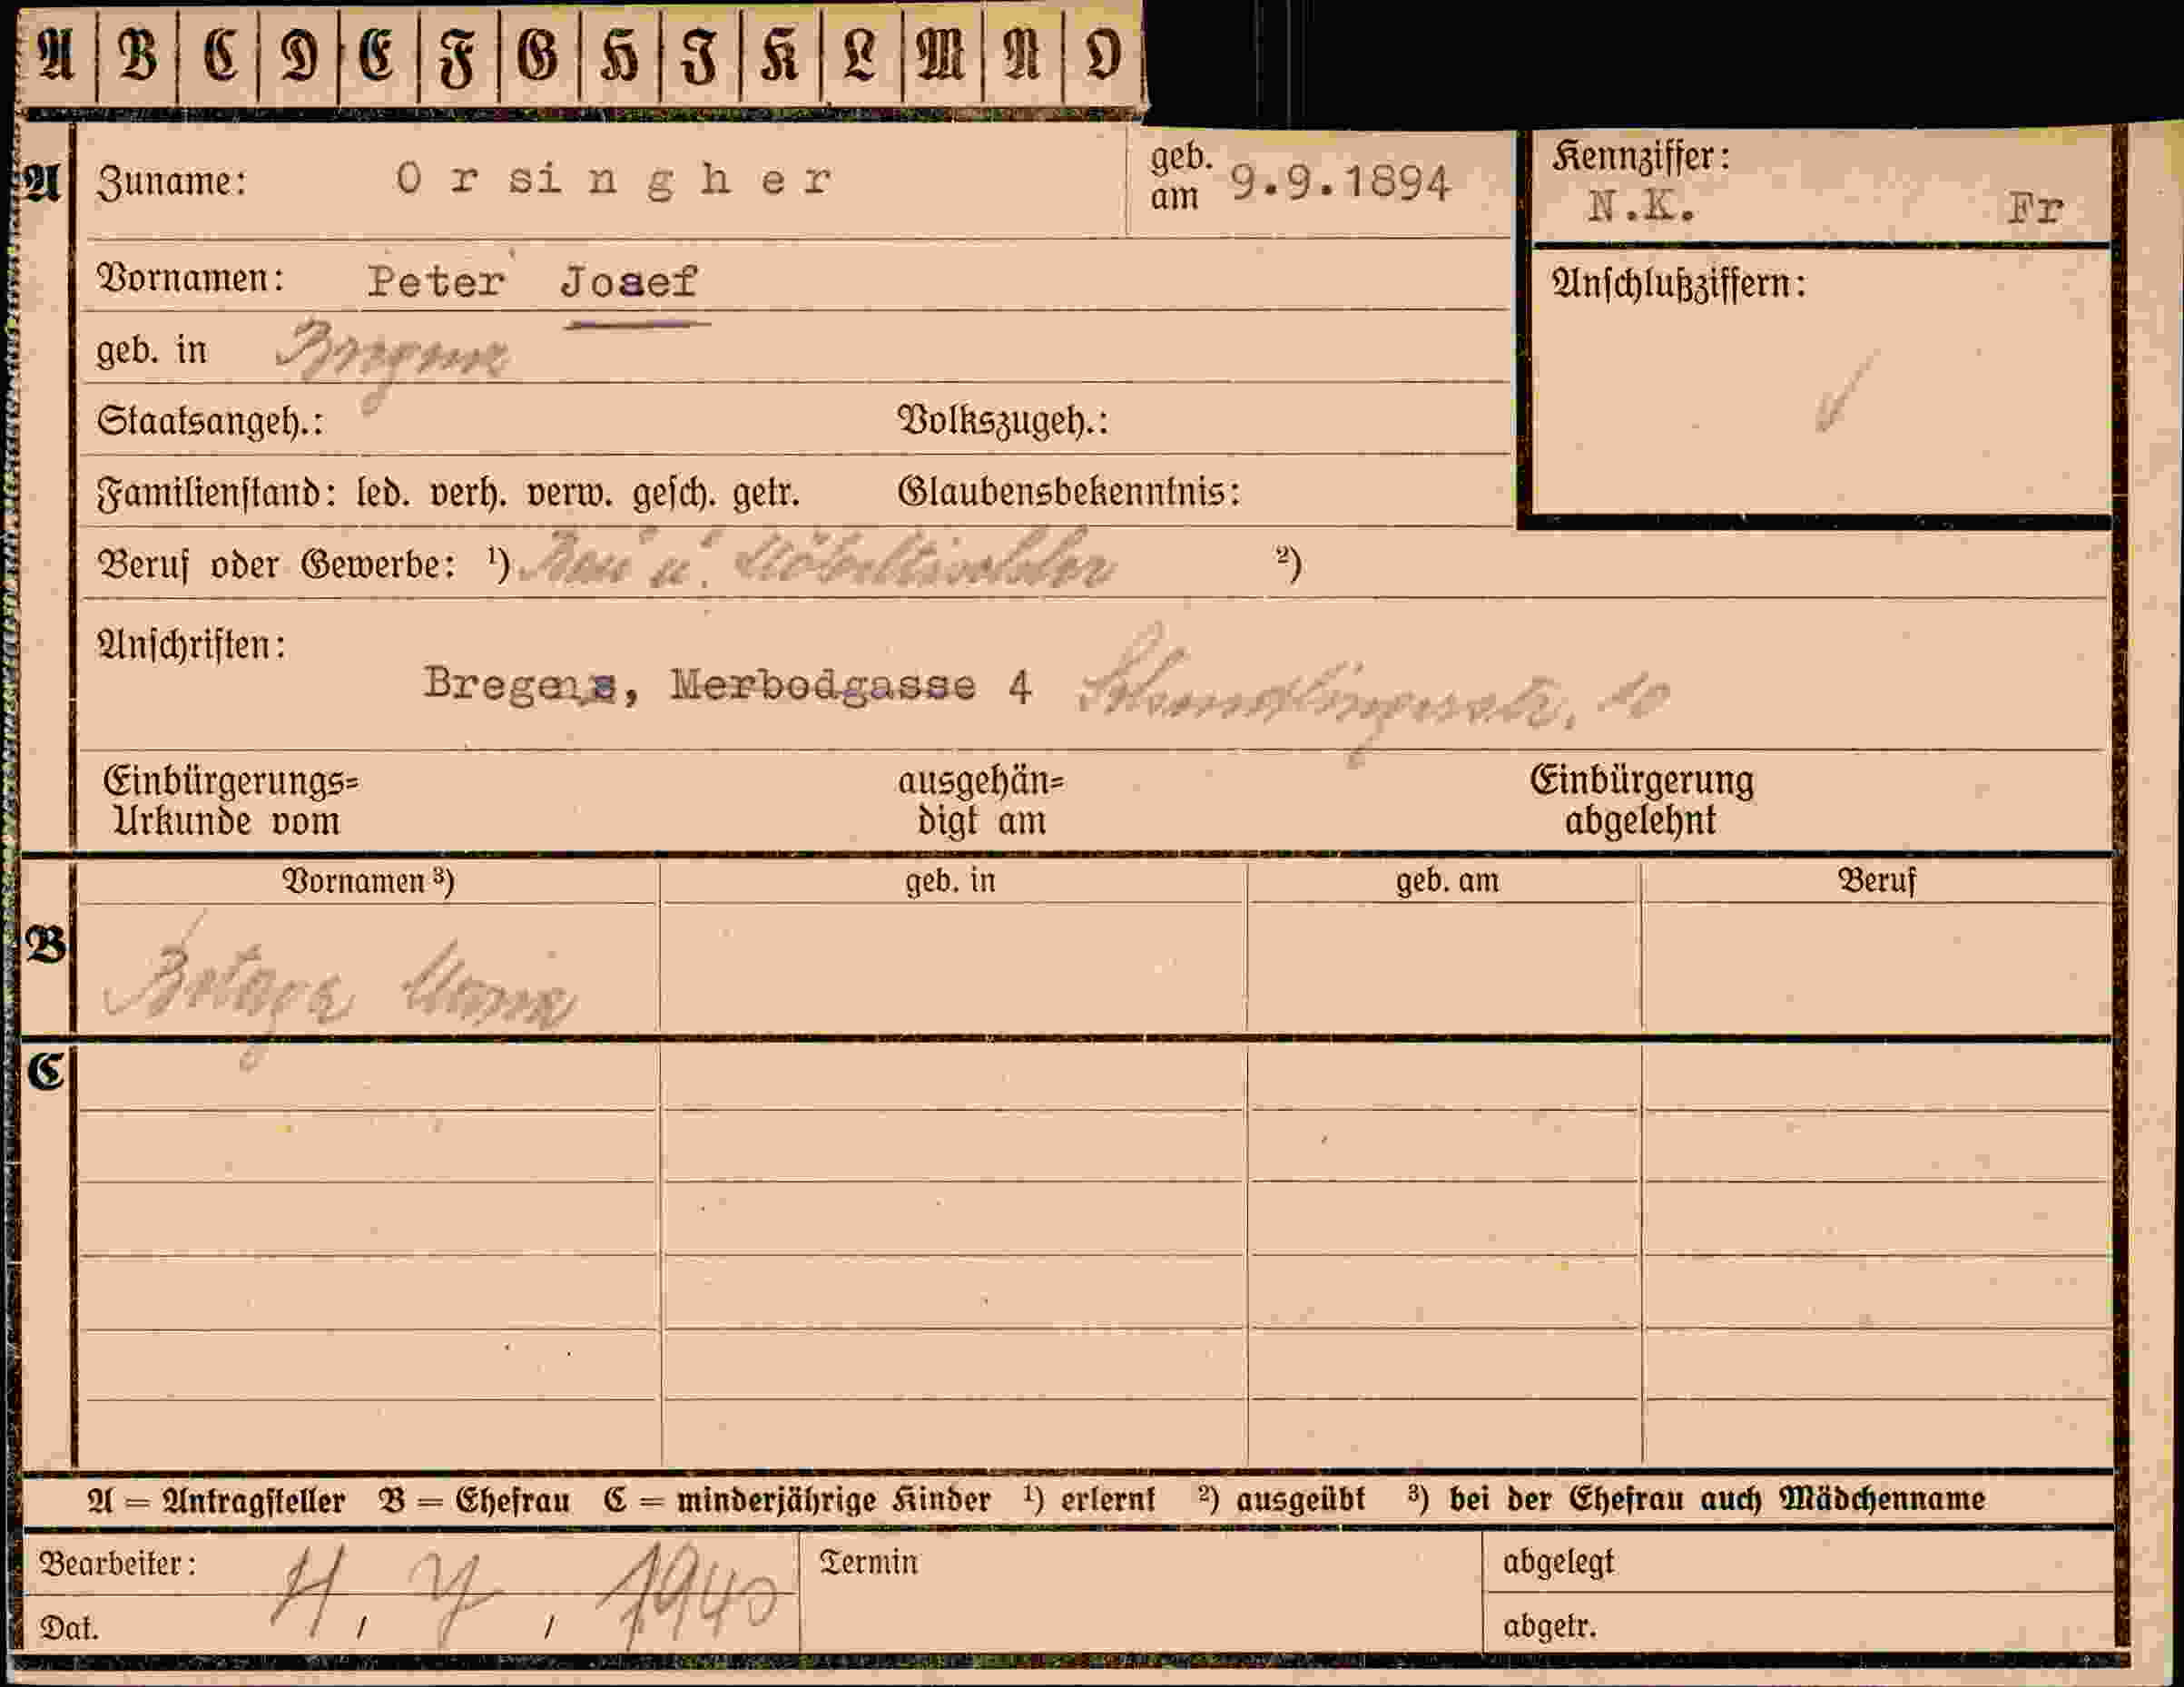 A B C D E F G H I K L M N O
A Zuname: Orsingher geb. am 9.9.1894
Kennziffer: N.K. Fr
Vornamen: Peter Josef
Anschlußziffern:
geb. in Bregenz
Staatsangeh.: Volkszugeh.:
Familienstand: led. verh. verw. gesch. getr. Glaubensbekenntnis:
Beruf oder Gewerbe: 1) Bau u. Möbeltischler 2)
Anschriften:
Bregenz, Merbodgasse 4 10
Einbürgerungs= ausgehän= Einbürgerung
Urkunde vom digt am abgelehnt
Vornamen 3) geb. in geb. am Beruf
B Maria
C
A = Antragsteller B = Ehefrau C = minderjährige Kinder 1) erlernt 2) ausgeübt 3) bei der Ehefrau auch Mädchenname
Bearbeiter: Termin abgelegt
Dat. 4. 7. 1940 abgetr.